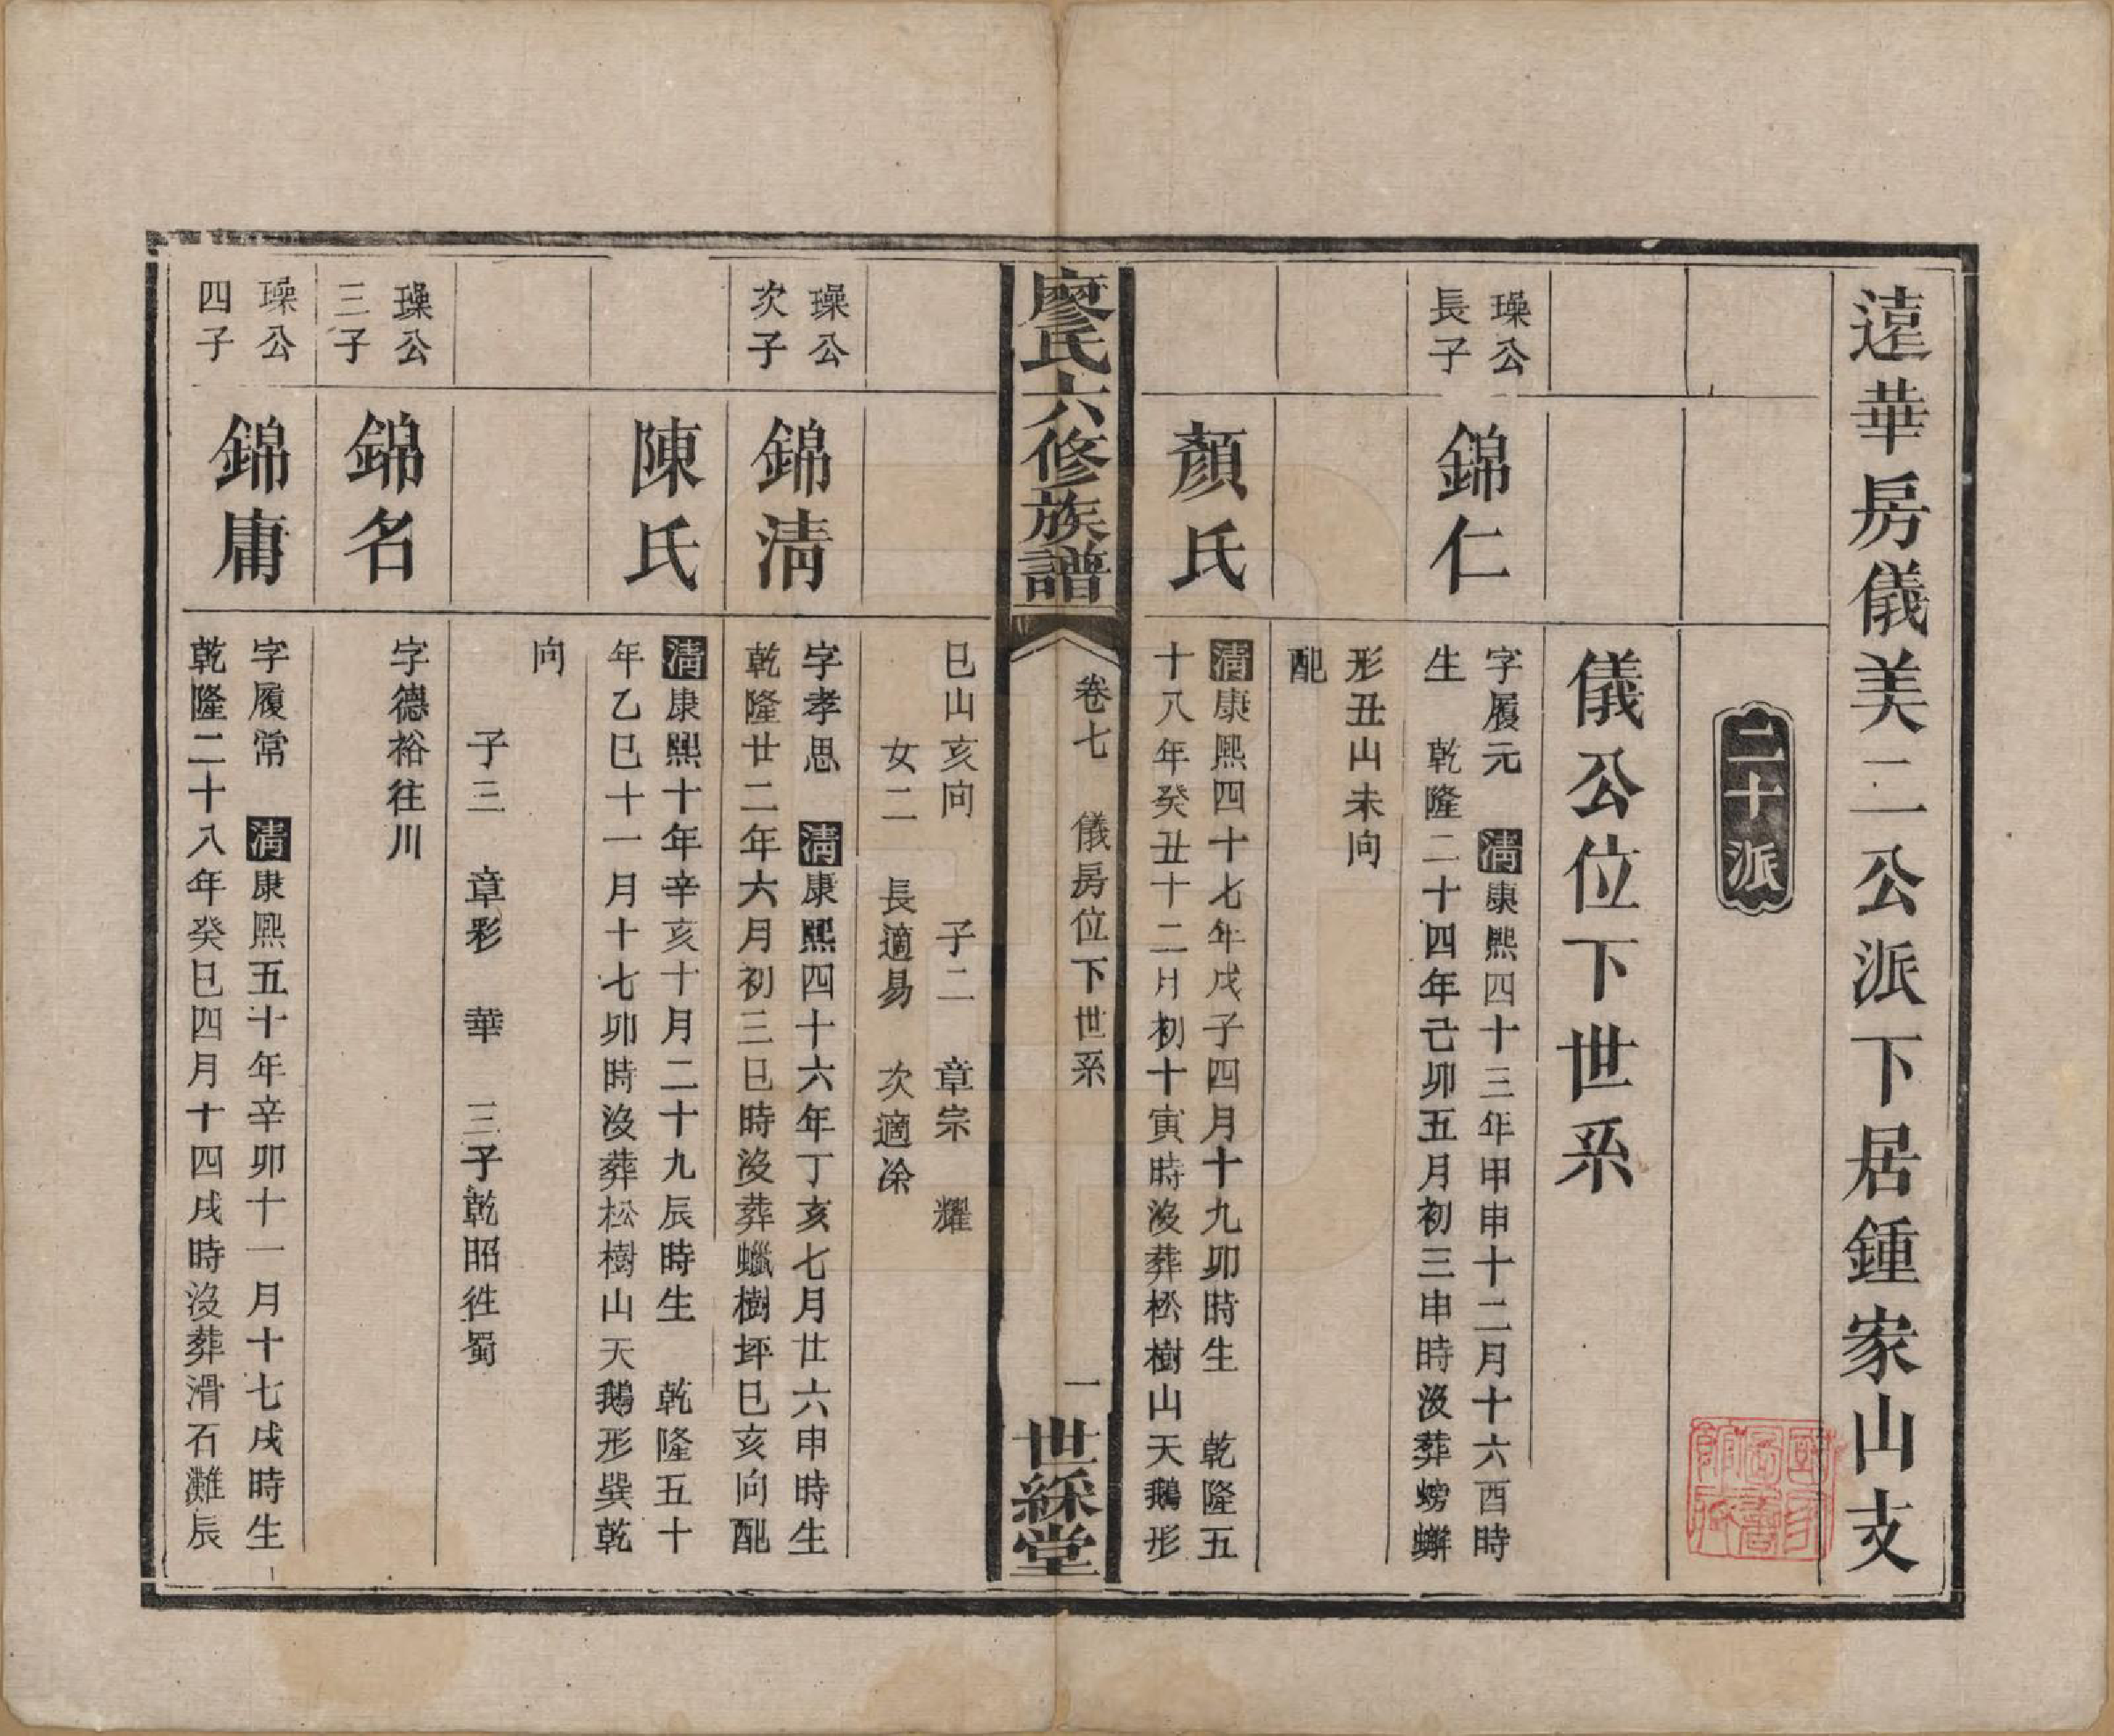 遠華房儀美二公派下居鍾家山支
二十派
儀公位下世系
璪公
長子
錦仁
字履元　清康熙四十三年甲申十二月十六酉時
生　乾隆二十四年己卯五月初三申時沒葬螃蠏
形丑山未向
配
顏氏
清康熙四十七年戊子四月十九卯時生　乾隆五
十八年癸丑十二月初十寅時沒葬松樹山天鵝形
廖氏六修族譜
卷七　儀房位下世系
一
世綵堂
巳山亥向　　子二　章宗　耀
女二　長適易　次適凃
璪公
次子
錦清
字孝思　清康熙四十六年丁亥七月廿六申時生
乾隆廿二年六月初三巳時沒葬蠟樹坪巳亥向配
陳氏
清康熙十年辛亥十月二十九辰時生　乾隆五十
年乙巳十一月十七卯時沒葬松樹山天鵝形巽乾
向
子三　章彩　華　三子乾昭徃蜀
璪公
三子
錦名
字德裕往川
璪公
四子
錦庸
字履常　清康熙五十年辛卯十一月十七戌時生
乾隆二十八年癸巳四月十四戌時沒葬滑石灘辰